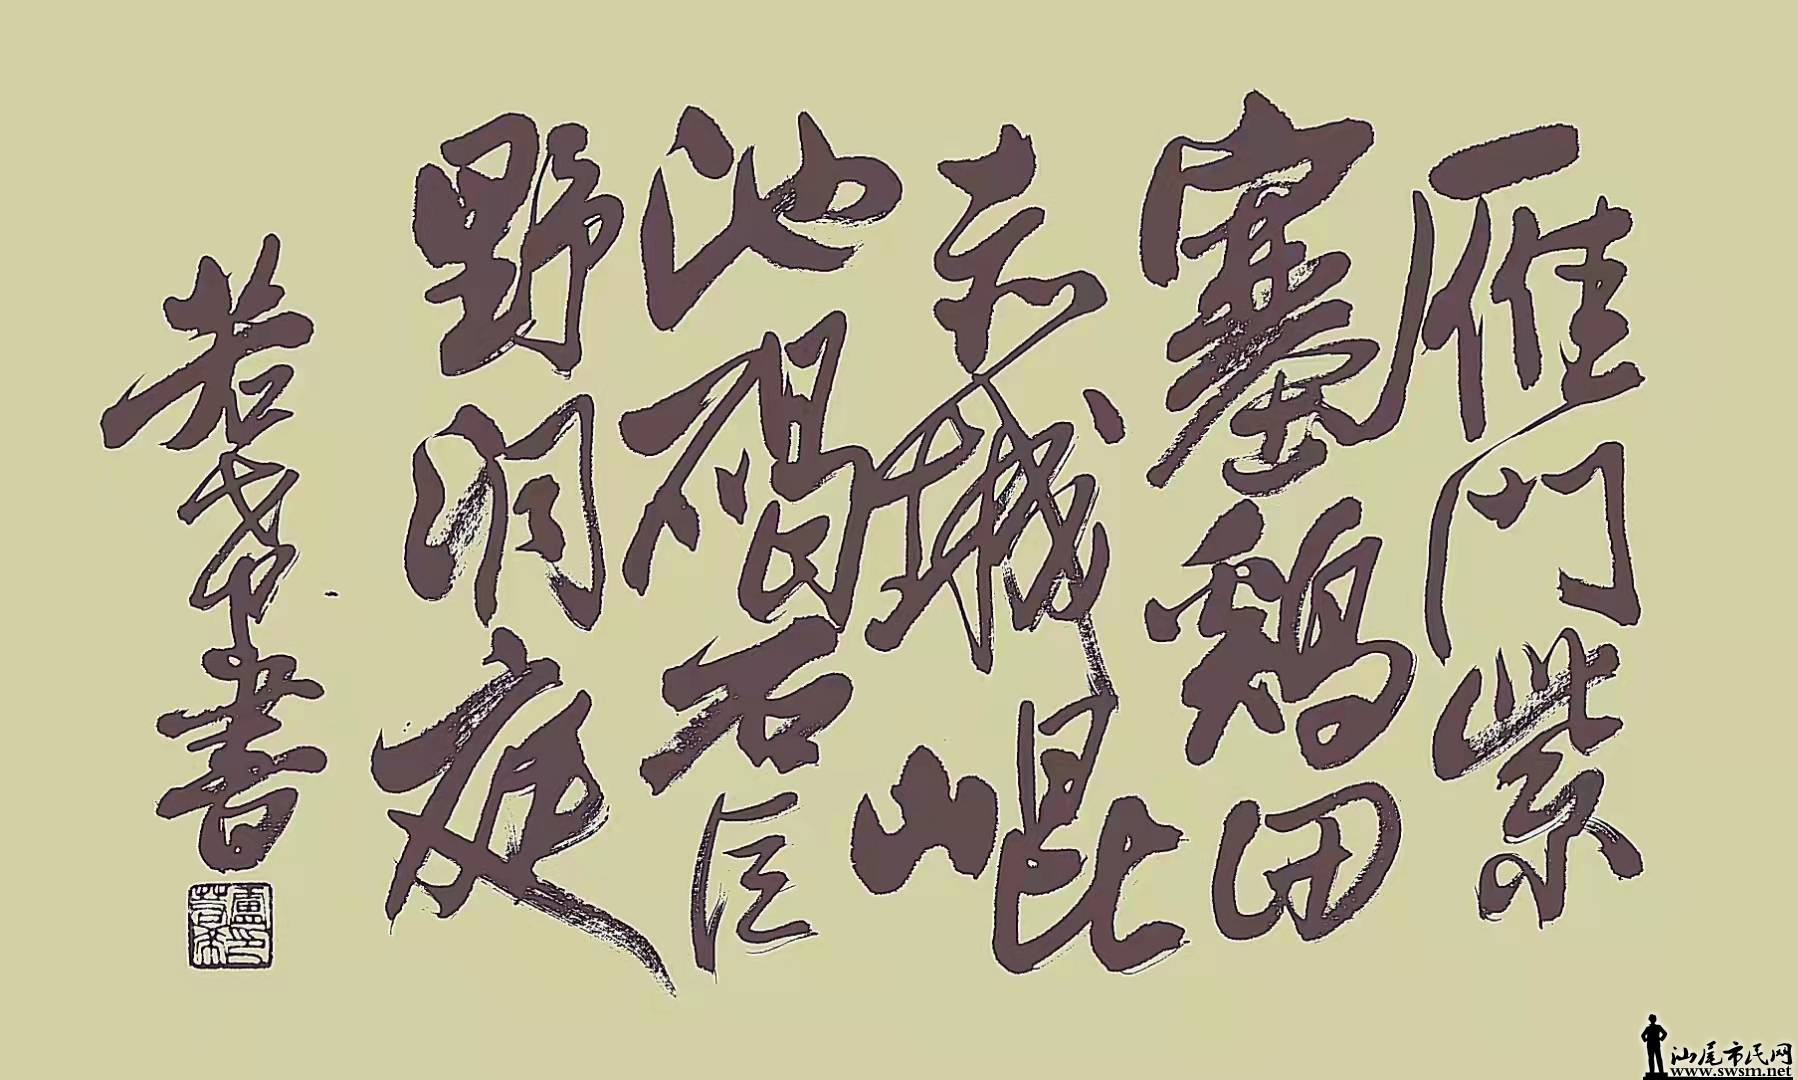 雁门紫
塞鸡田
赤城昆
池碣石
野洞庭
若华书
汕尾市民网
www.swsm.net